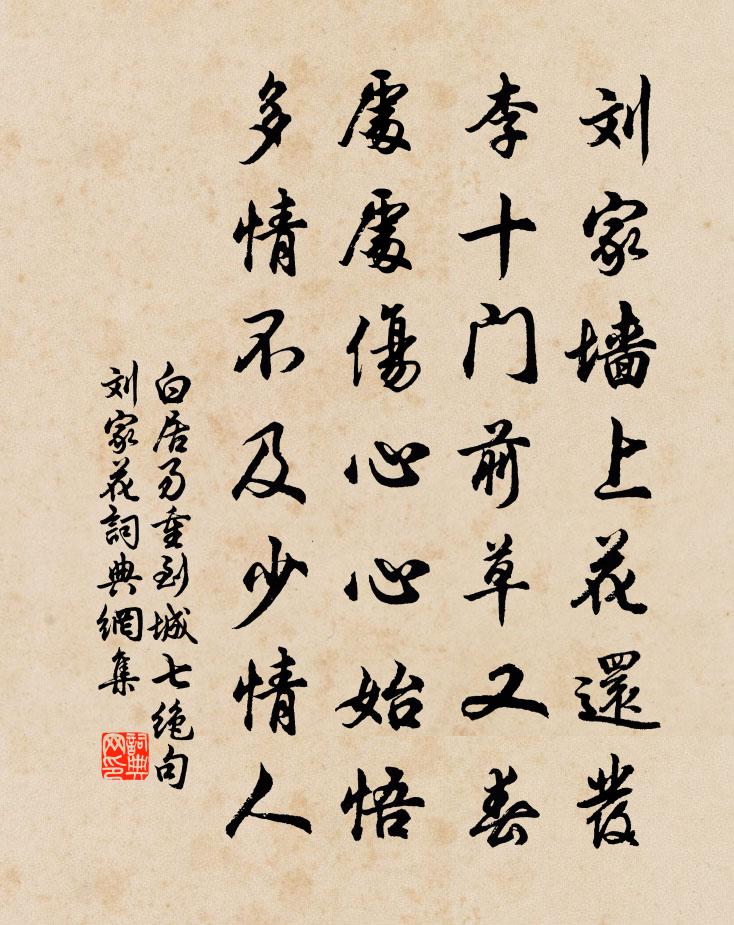 刘家墙上花還發
李十门前草又春
處處傷心心始悟
多情不及少情人
白居易重到城七绝句
刘家花詞典網集
詞典
网印